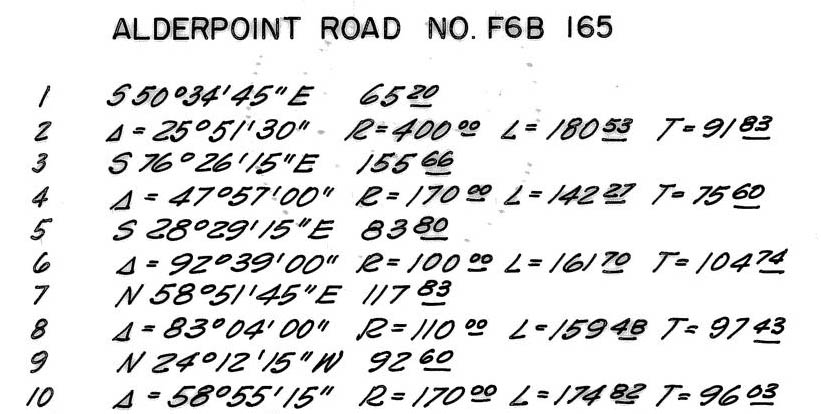 ALDERPOINT ROAD NO. F6B 165
1 S 50°34'45"E 65 20
2 Δ = 25°51'30" R = 400 00 L = 180 53 T = 91 83
3 S 76°26'15"E 155 66
4 Δ = 47°57'00" R = 170 00 L = 142 27 T = 75 60
5 S 28°29'15"E 83 80
6 Δ = 92°39'00" R = 100 00 L = 161 70 T = 104 74
7 N 58°51'45"E 117 83
8 Δ = 83°04'00" R = 110 00 L = 159 48 T = 97 43
9 N 24°12'15"W 92 60
10 Δ = 58°55'15" R = 170 00 L = 174 82 T = 96 03